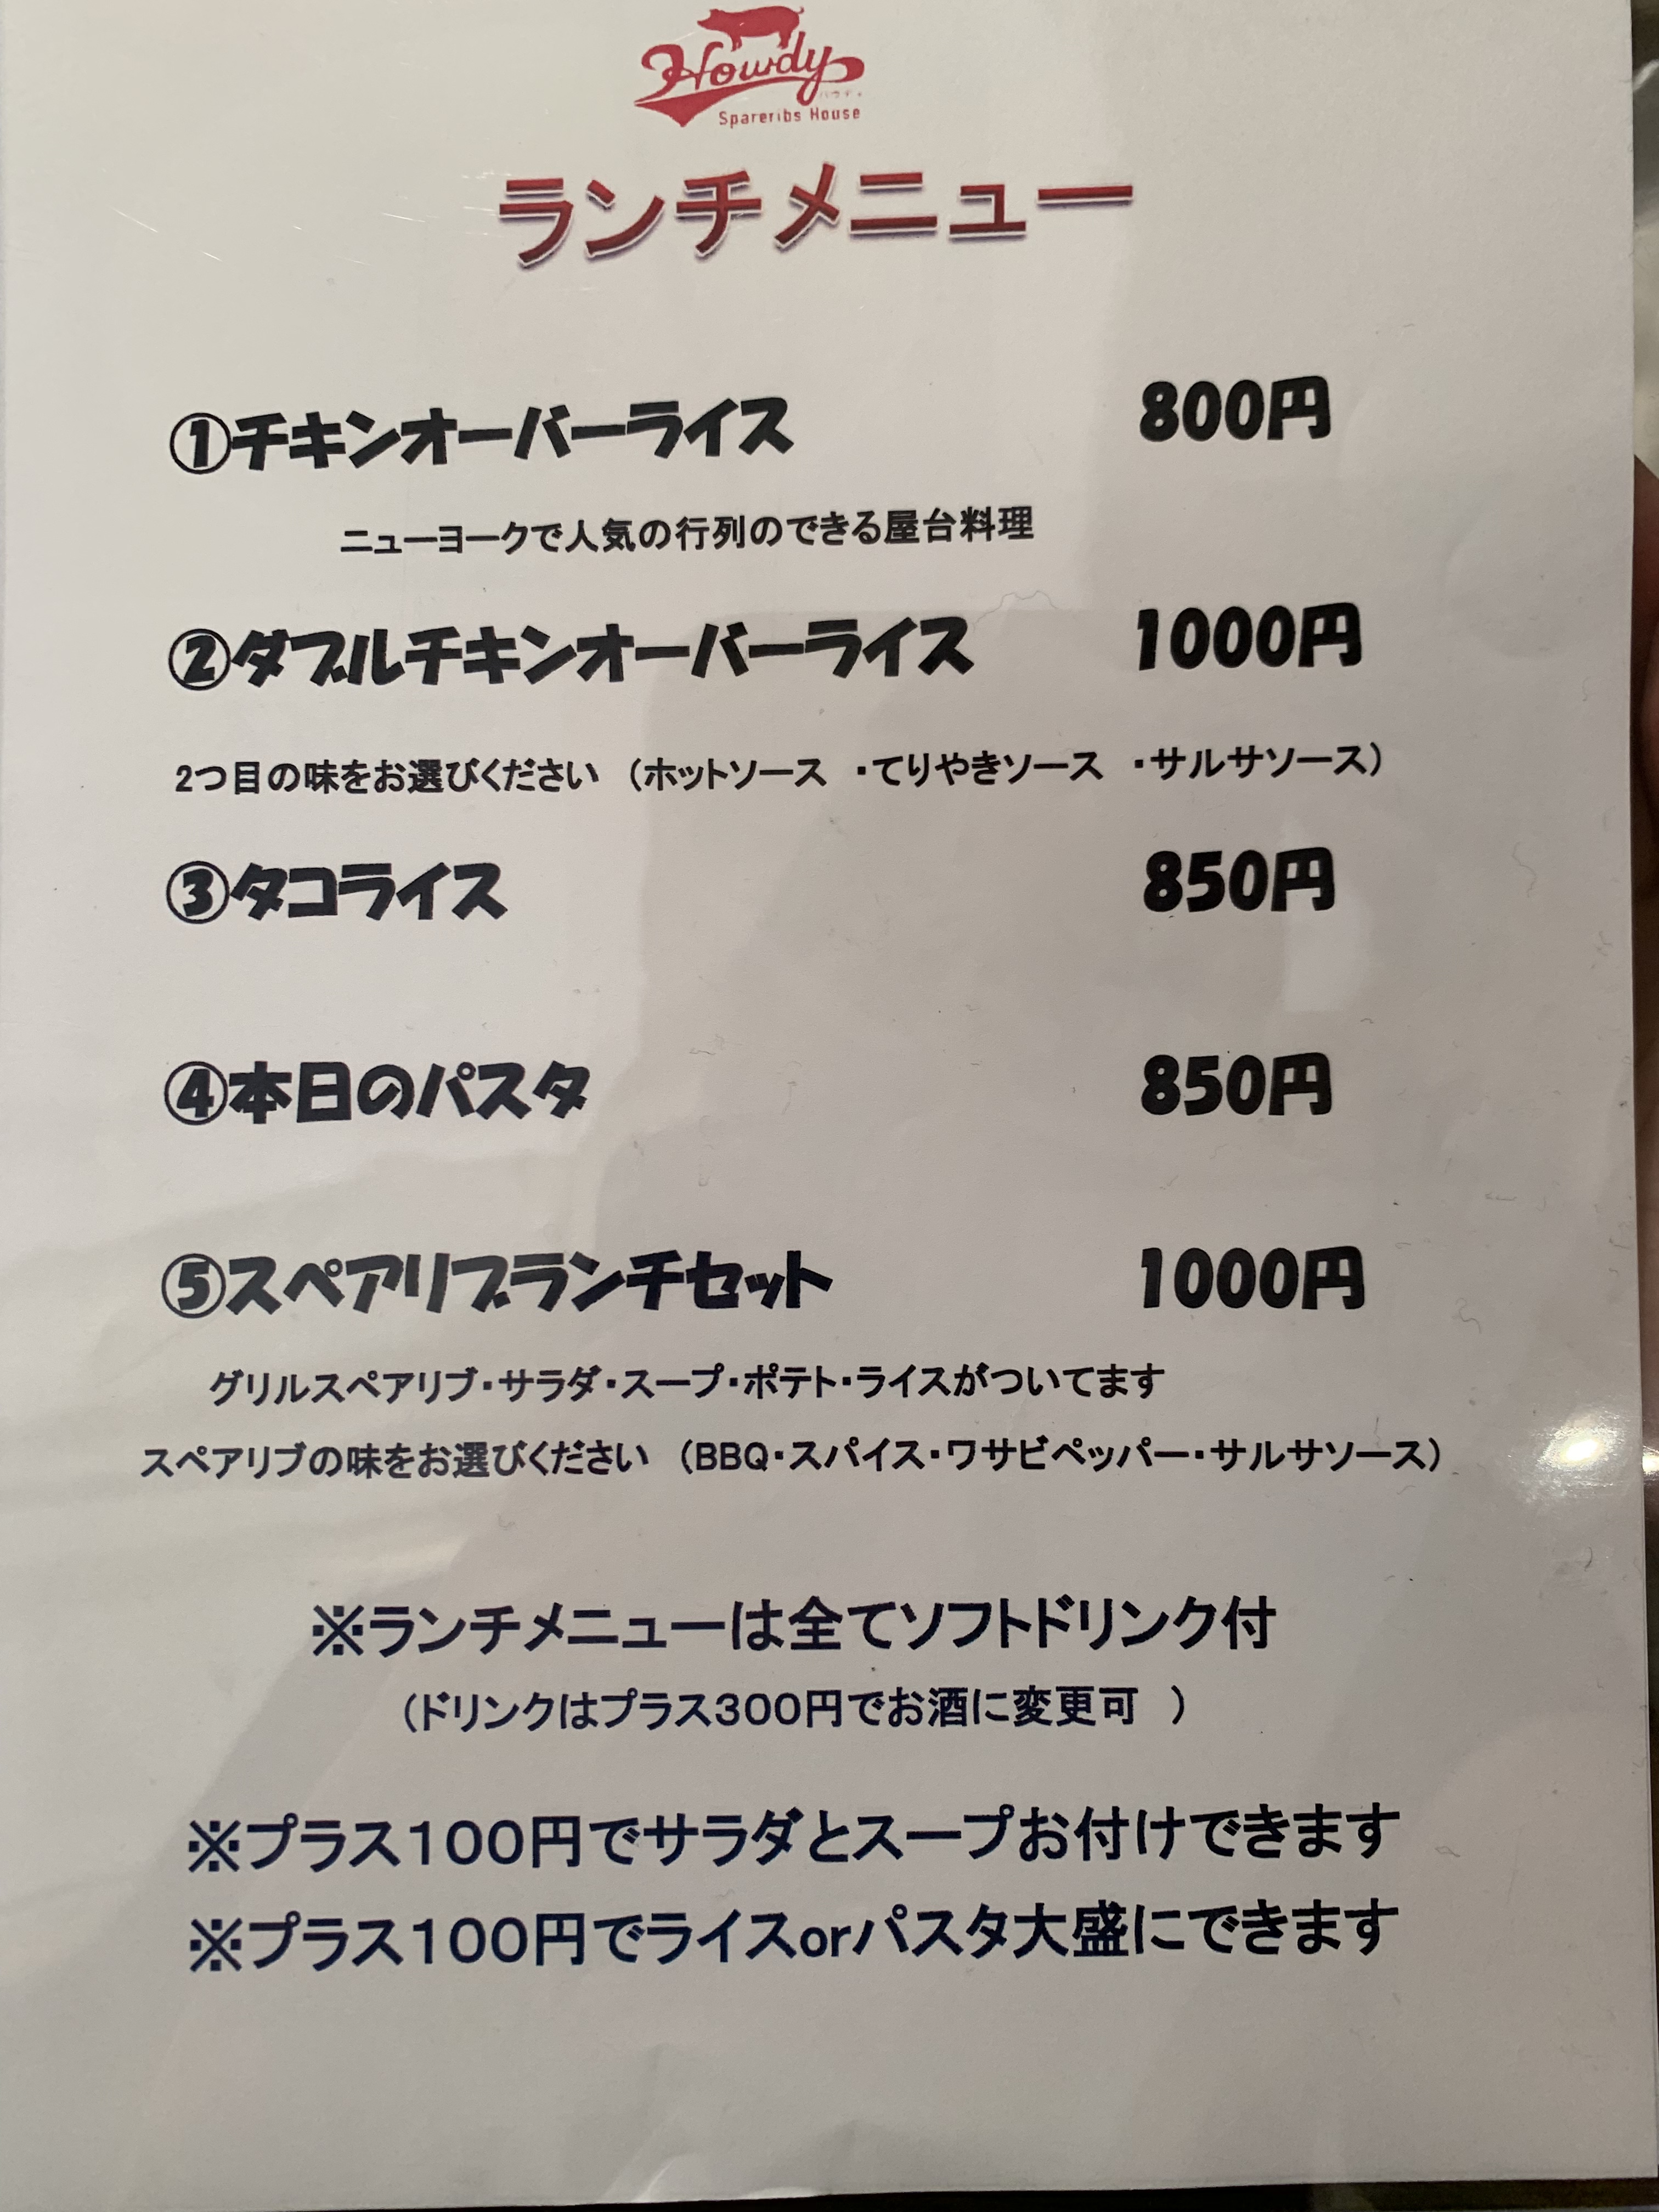 Howdy
ハウディ
Spareribs House
ランチメニュー
①チキンオーバーライス 800円
ニューヨークで人気の行列のできる屋台料理
②ダブルチキンオーバーライス 1000円
2つ目の味をお選びください （ホットソース ・てりやきソース ・サルサソース）
③タコライス 850円
④本日のパスタ 850円
⑤スペアリブランチセット 1000円
グリルスペアリブ・サラダ・スープ・ポテト・ライスがついてます
スペアリブの味をお選びください （BBQ・スパイス・ワサビペッパー・サルサソース）
※ランチメニューは全てソフトドリンク付
（ドリンクはプラス300円でお酒に変更可 ）
※プラス100円でサラダとスープお付けできます
※プラス100円でライスorパスタ大盛にできます